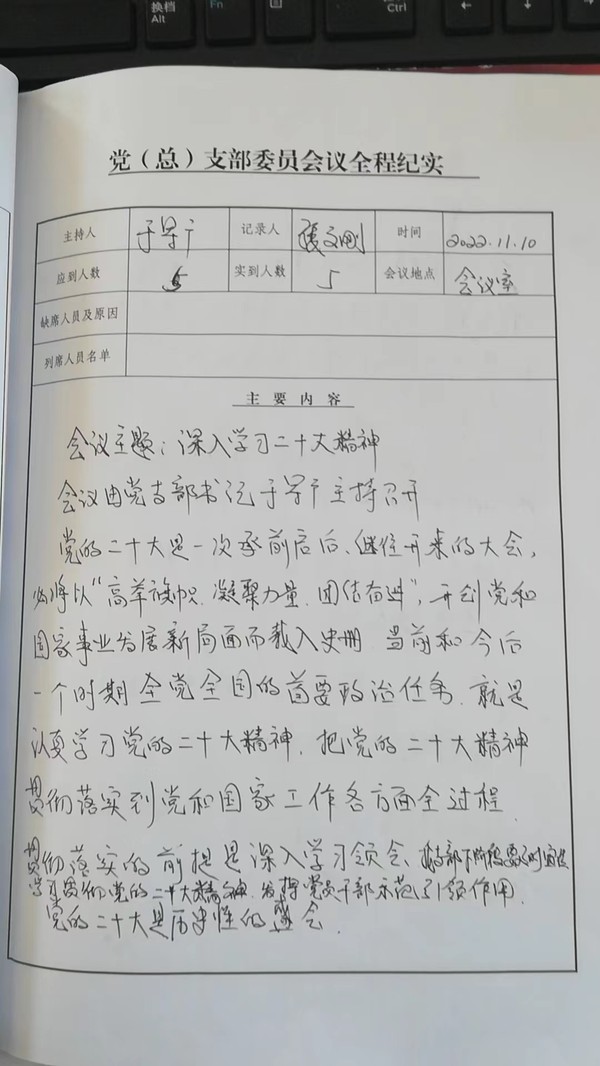 换档
Alt
Fn
Ctrl
党（总）支部委员会议全程纪实
主持人 于学广 记录人 张文刚 时间 2022.11.10
应到人数 5 实到人数 5 会议地点 会议室
缺席人员及原因
列席人员名单
主要内容
会议主题：深入学习二十大精神
会议由党支部书记于学广主持召开
党的二十大是一次承前启后、继往开来的大会，
必将以“高举旗帜、凝聚力量、团结奋进”，开创党和
国家事业发展新局面而载入史册 当前和今后
一个时期 全党全国的首要政治任务，就是
认真学习党的二十大精神，把党的二十大精神
贯彻落实到党和国家工作各方面全过程．
贯彻落实的前提是深入学习领会、支部下阶段要
学习贯彻党的二十大精神，发挥党员干部示范引领作用．
党的二十大是历史性的盛会．